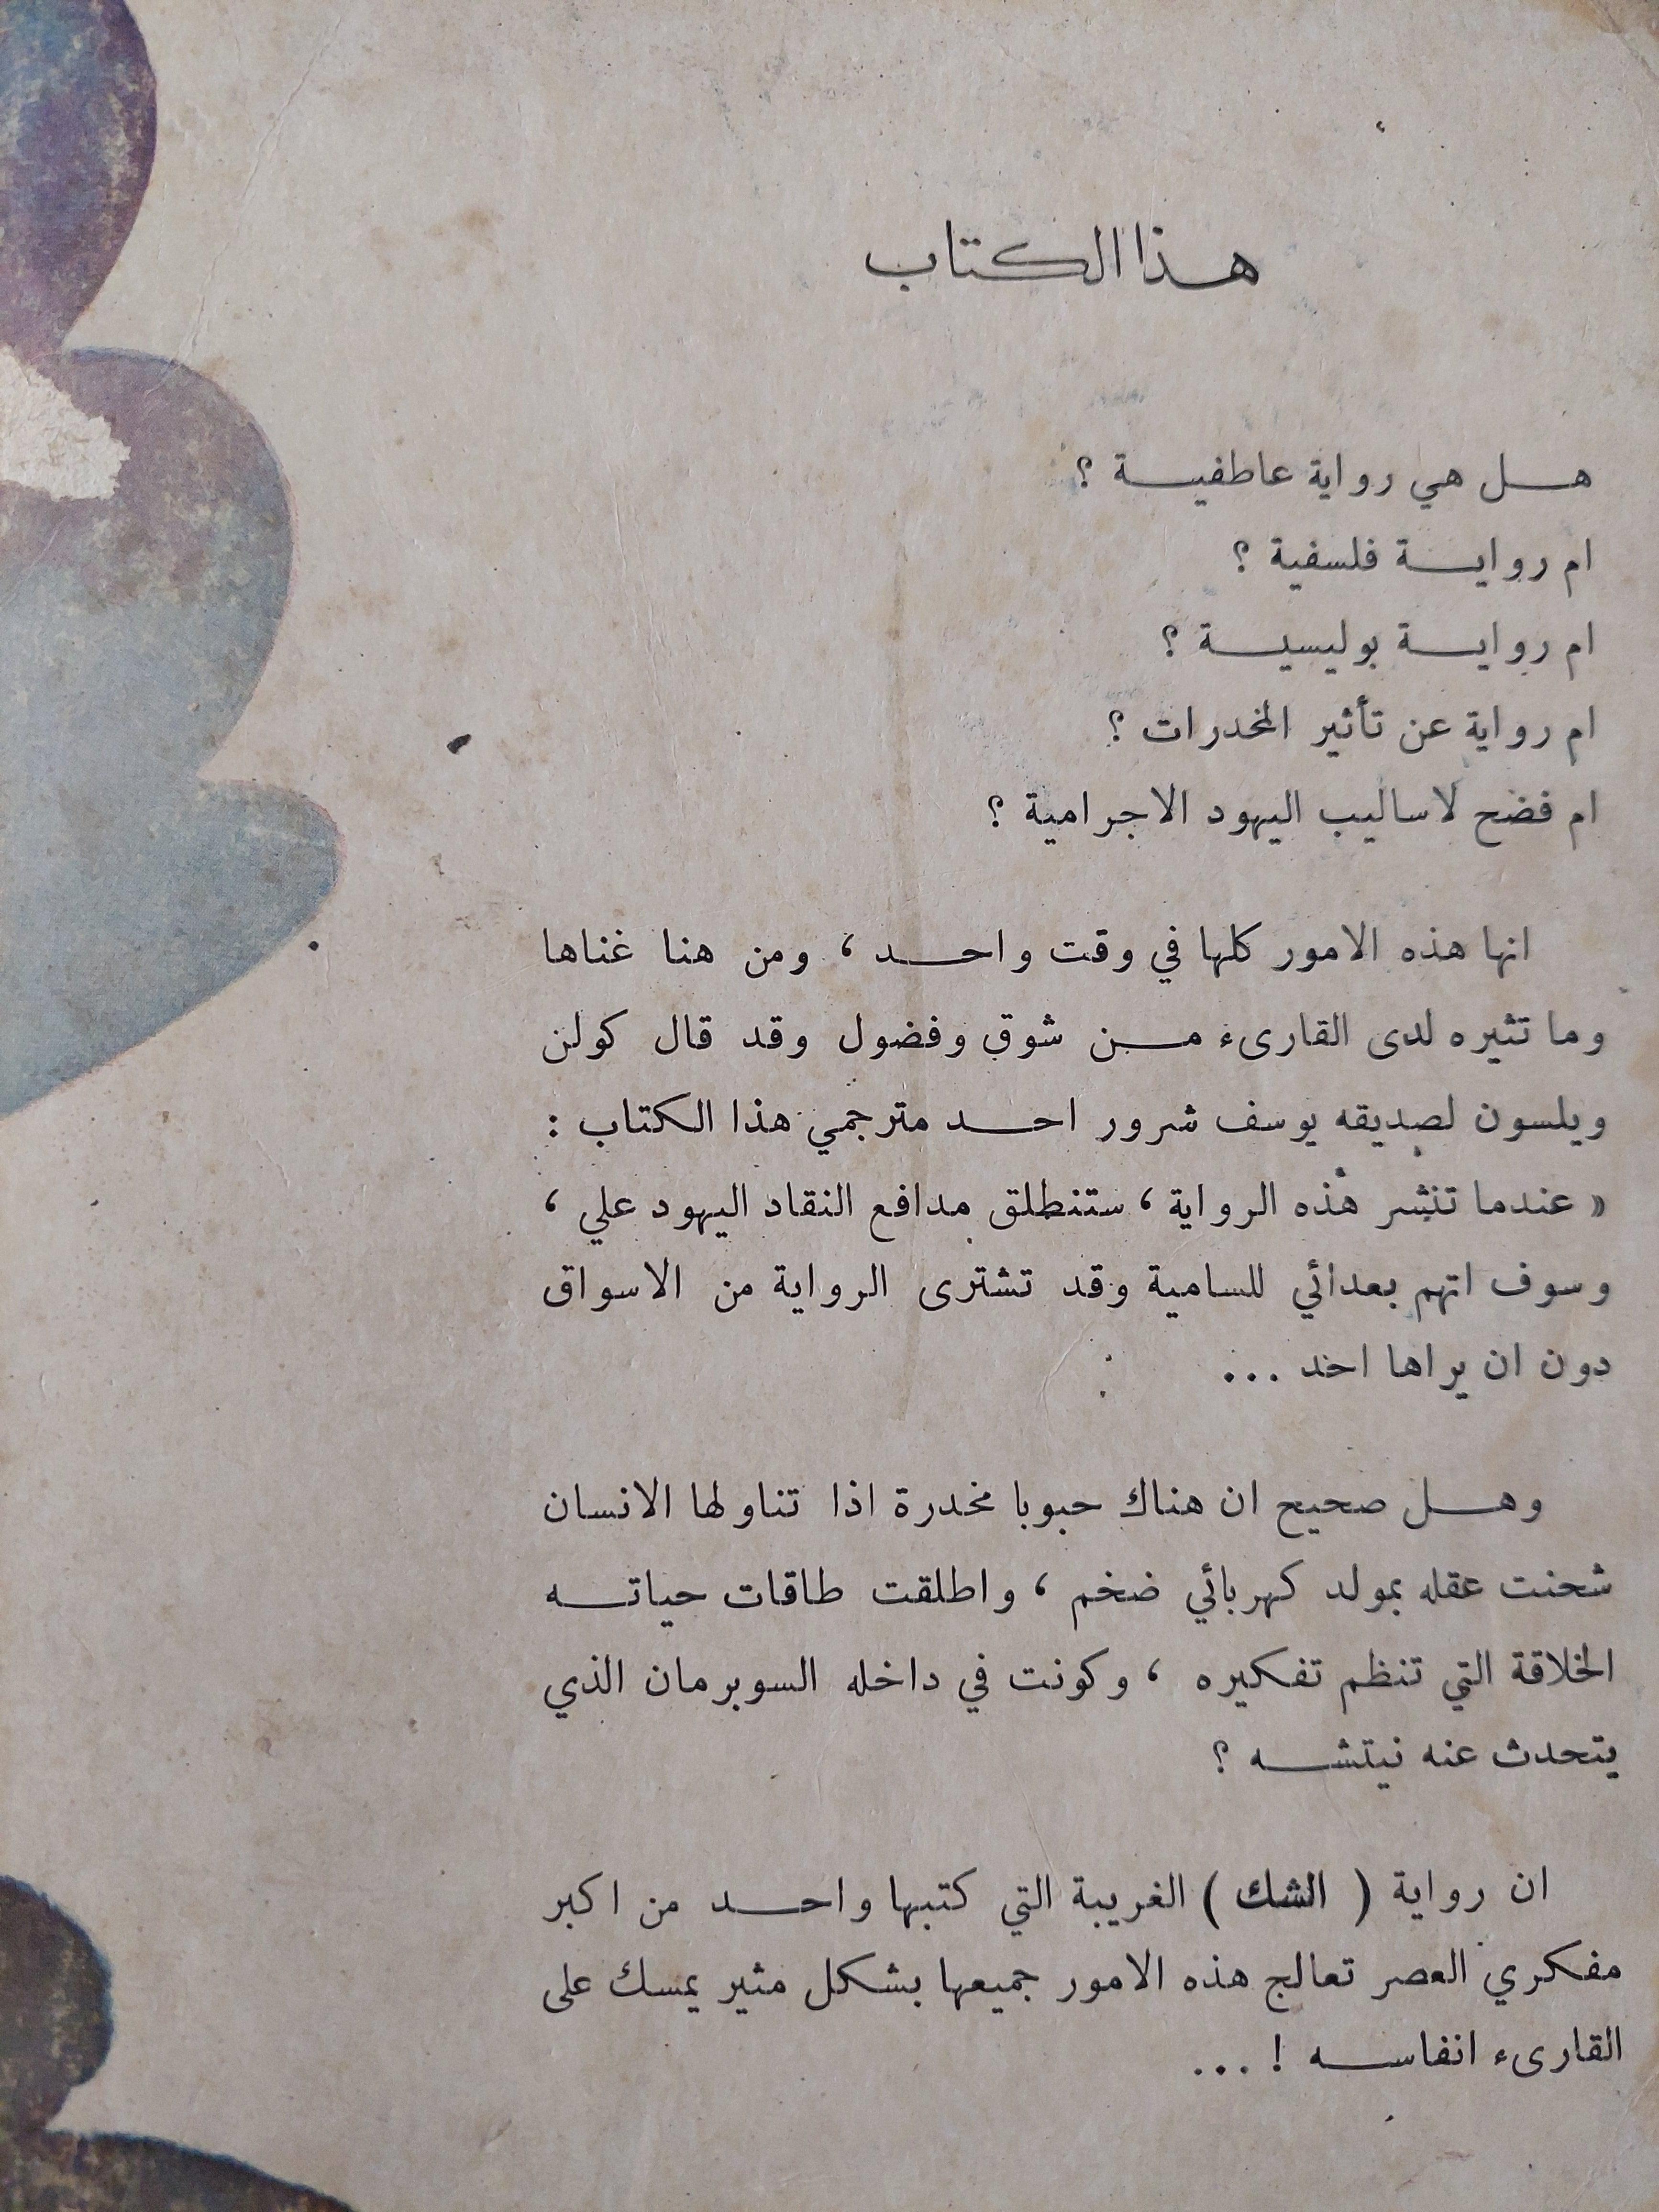 هذا الكتاب
هل هي رواية عاطفية ؟
ام رواية فلسفية ؟
ام رواية بوليسية ؟
ام رواية عن تأثير المخدرات ؟
ام فضح لاساليب اليهود الاجرامية ؟
انها هذه الامور كلها في وقت واحد ، ومن هنا غناها
وما تثيره لدى القارىء من شوق وفضول وقد قال كولن
ويلسون لصديقه يوسف شرور احد مترجمي هذا الكتاب :
« عندما تنشر هذه الرواية ، ستنطلق مدافع النقاد اليهود علي ،
وسوف اتهم بعدائي للسامية وقد تشترى الرواية من الاسواق
دون ان يراها احد ...
وهل صحيح ان هناك حبوبا مخدرة اذا تناولها الانسان
شحنت عقله بمولد كهربائي ضخم ، واطلقت طاقات حياته
الخلاقة التي تنظم تفكيره ، وكونت في داخله السوبرمان الذي
يتحدث عنه نيتشه ؟
ان رواية ( الشك ) الغريبة التي كتبها واحد من اكبر
مفكري العصر تعالج هذه الامور جميعها بشكل مثير يمسك على
القارىء انفاسه ! ...